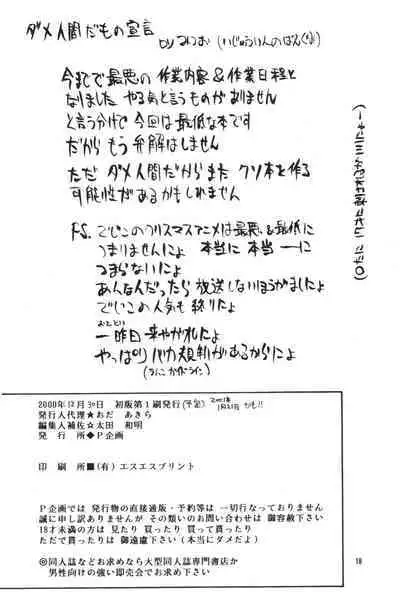 ダメ人間だもの宣言
by
今まで最悪の作業内容&作業日程と
なりました やる気と言うものがありません
と言う分けで今回は最低な本です
だからもう弁解はしません
ただ ダメ人間だからまた クソ本を作る
可能性があるかもしれません
P.S. でじこのクリスマスアニメは最悪&最低に
つまりませんにょ 本当に 本当ーーに
つまらないにょ
あんなんだったら 放送しないほうがましにょ
でじこの人気も終りにょ
おととい
一昨日来やがれにょ
やっぱり バカ規制があるからにょ
2000年12月30日 初版第1刷発行(予定)
発行人代理★おだ あきら
編集人補佐☆太田 和明
発行所◆P企画
印刷所■(有)エスエスプリント
P企画では 発行物の直接通販・予約等は 一切行なっておりません
誠に申し訳ありませんが その類いのお問い合わせは 御容赦下さい
18才未満の方は 見たり 買ったり 買って貰ったり
ただで貰ったりは 御遠慮下さい(本当にダメだよ)
◎同人誌などお求めなら大型同人誌専門書店か
男性向けの強い即売会でお求め下さい
18